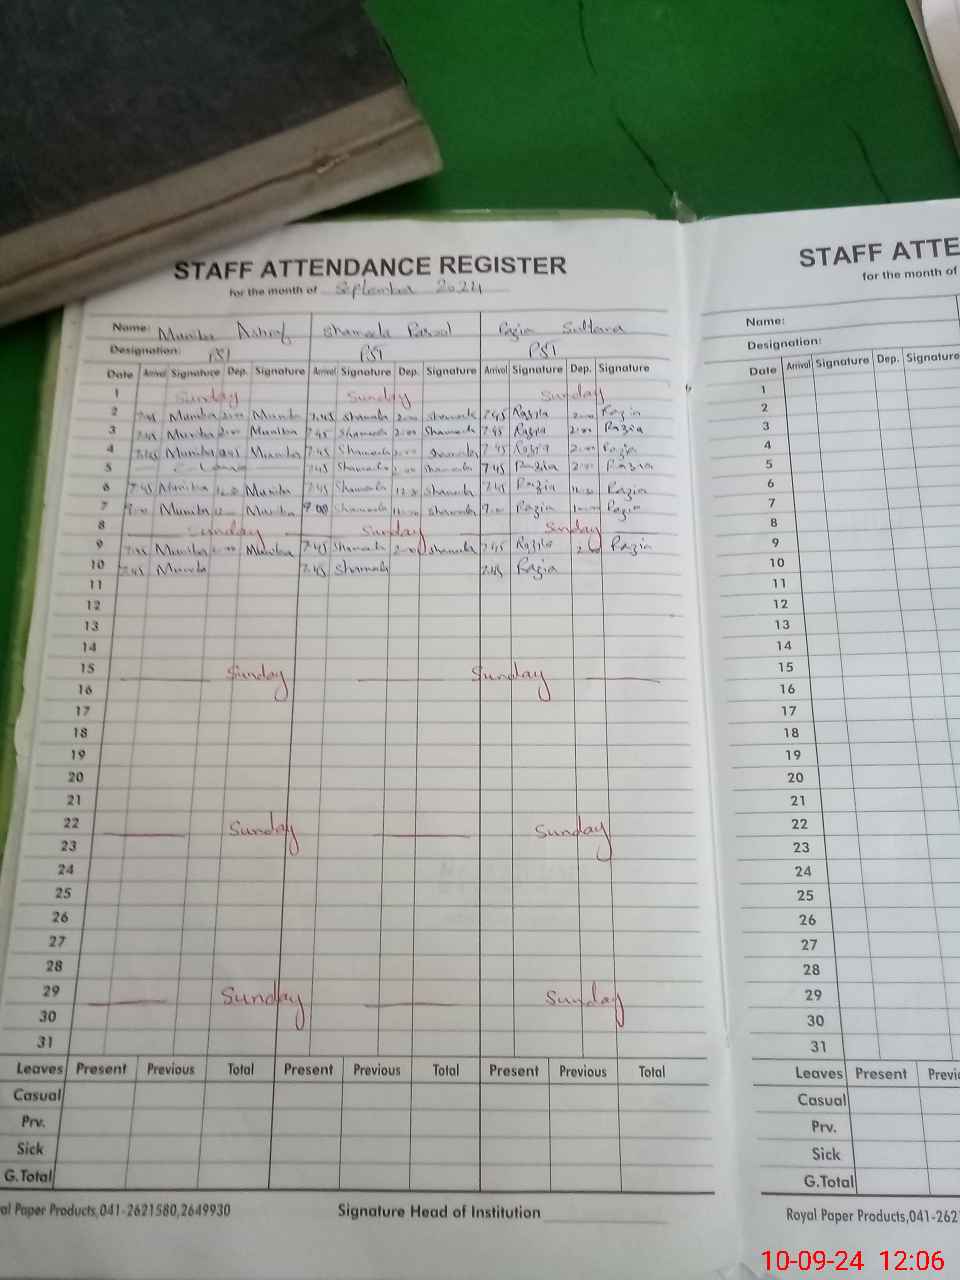 STAFF ATTENDANCE REGISTER
for the month of September 2024
Name: Muniba Ashraf Shameela Rasool Razia Sultana
Designation: PST PST PST
Date Arrival Signature Dep. Signature Arrival Signature Dep. Signature Arrival Signature Dep. Signature
1 Sunday Sunday Sunday
2 7.45 Muniba 2:00 Muniba 7.45 Shameela 2:00 Shameela 7.45 Razia 2:00 Razia
3 7.45 Muniba 2:00 Muniba 7.45 Shameela 2:00 Shameela 7.45 Razia 2:00 Razia
4 7.45 Muniba Muniba 7.45 Shameela 2:00 Shameela 7.45 Razia 2:00 Razia
5 7.45 Shameela 2:00 Shameela 7.45 Razia 2:00 Razia
6 7.45 Muniba Muniba 7.45 Shameela Shameela 7.45 Razia Razia
7 9:00 Muniba Muniba 9:00 Shameela Shameela 9:00 Razia Razia
8 Sunday Sunday Sunday
9 7.45 Muniba 2:00 Muniba 7.45 Shameela 2:00 Shameela 7.45 Razia 2:00 Razia
10 7.45 Muniba 7.45 Shameela 7.45 Razia
11
12
13
14
15 Sunday Sunday
16
17
18
19
20
21
22 Sunday Sunday
23
24
25
26
27
28
29 Sunday Sunday
30
31
Leaves Present Previous Total Present Previous Total Present Previous Total
Casual
Prv.
Sick
G.Total
al Paper Products,041-2621580,2649930 Signature Head of Institution
STAFF ATTE
for the month of
Name:
Designation:
Date Arrival Signature Dep. Signature
1
2
3
4
5
6
7
8
9
10
11
12
13
14
15
16
17
18
19
20
21
22
23
24
25
26
27
28
29
30
31
Leaves Present Previ
Casual
Prv.
Sick
G.Total
Royal Paper Products,041-262
10-09-24 12:06